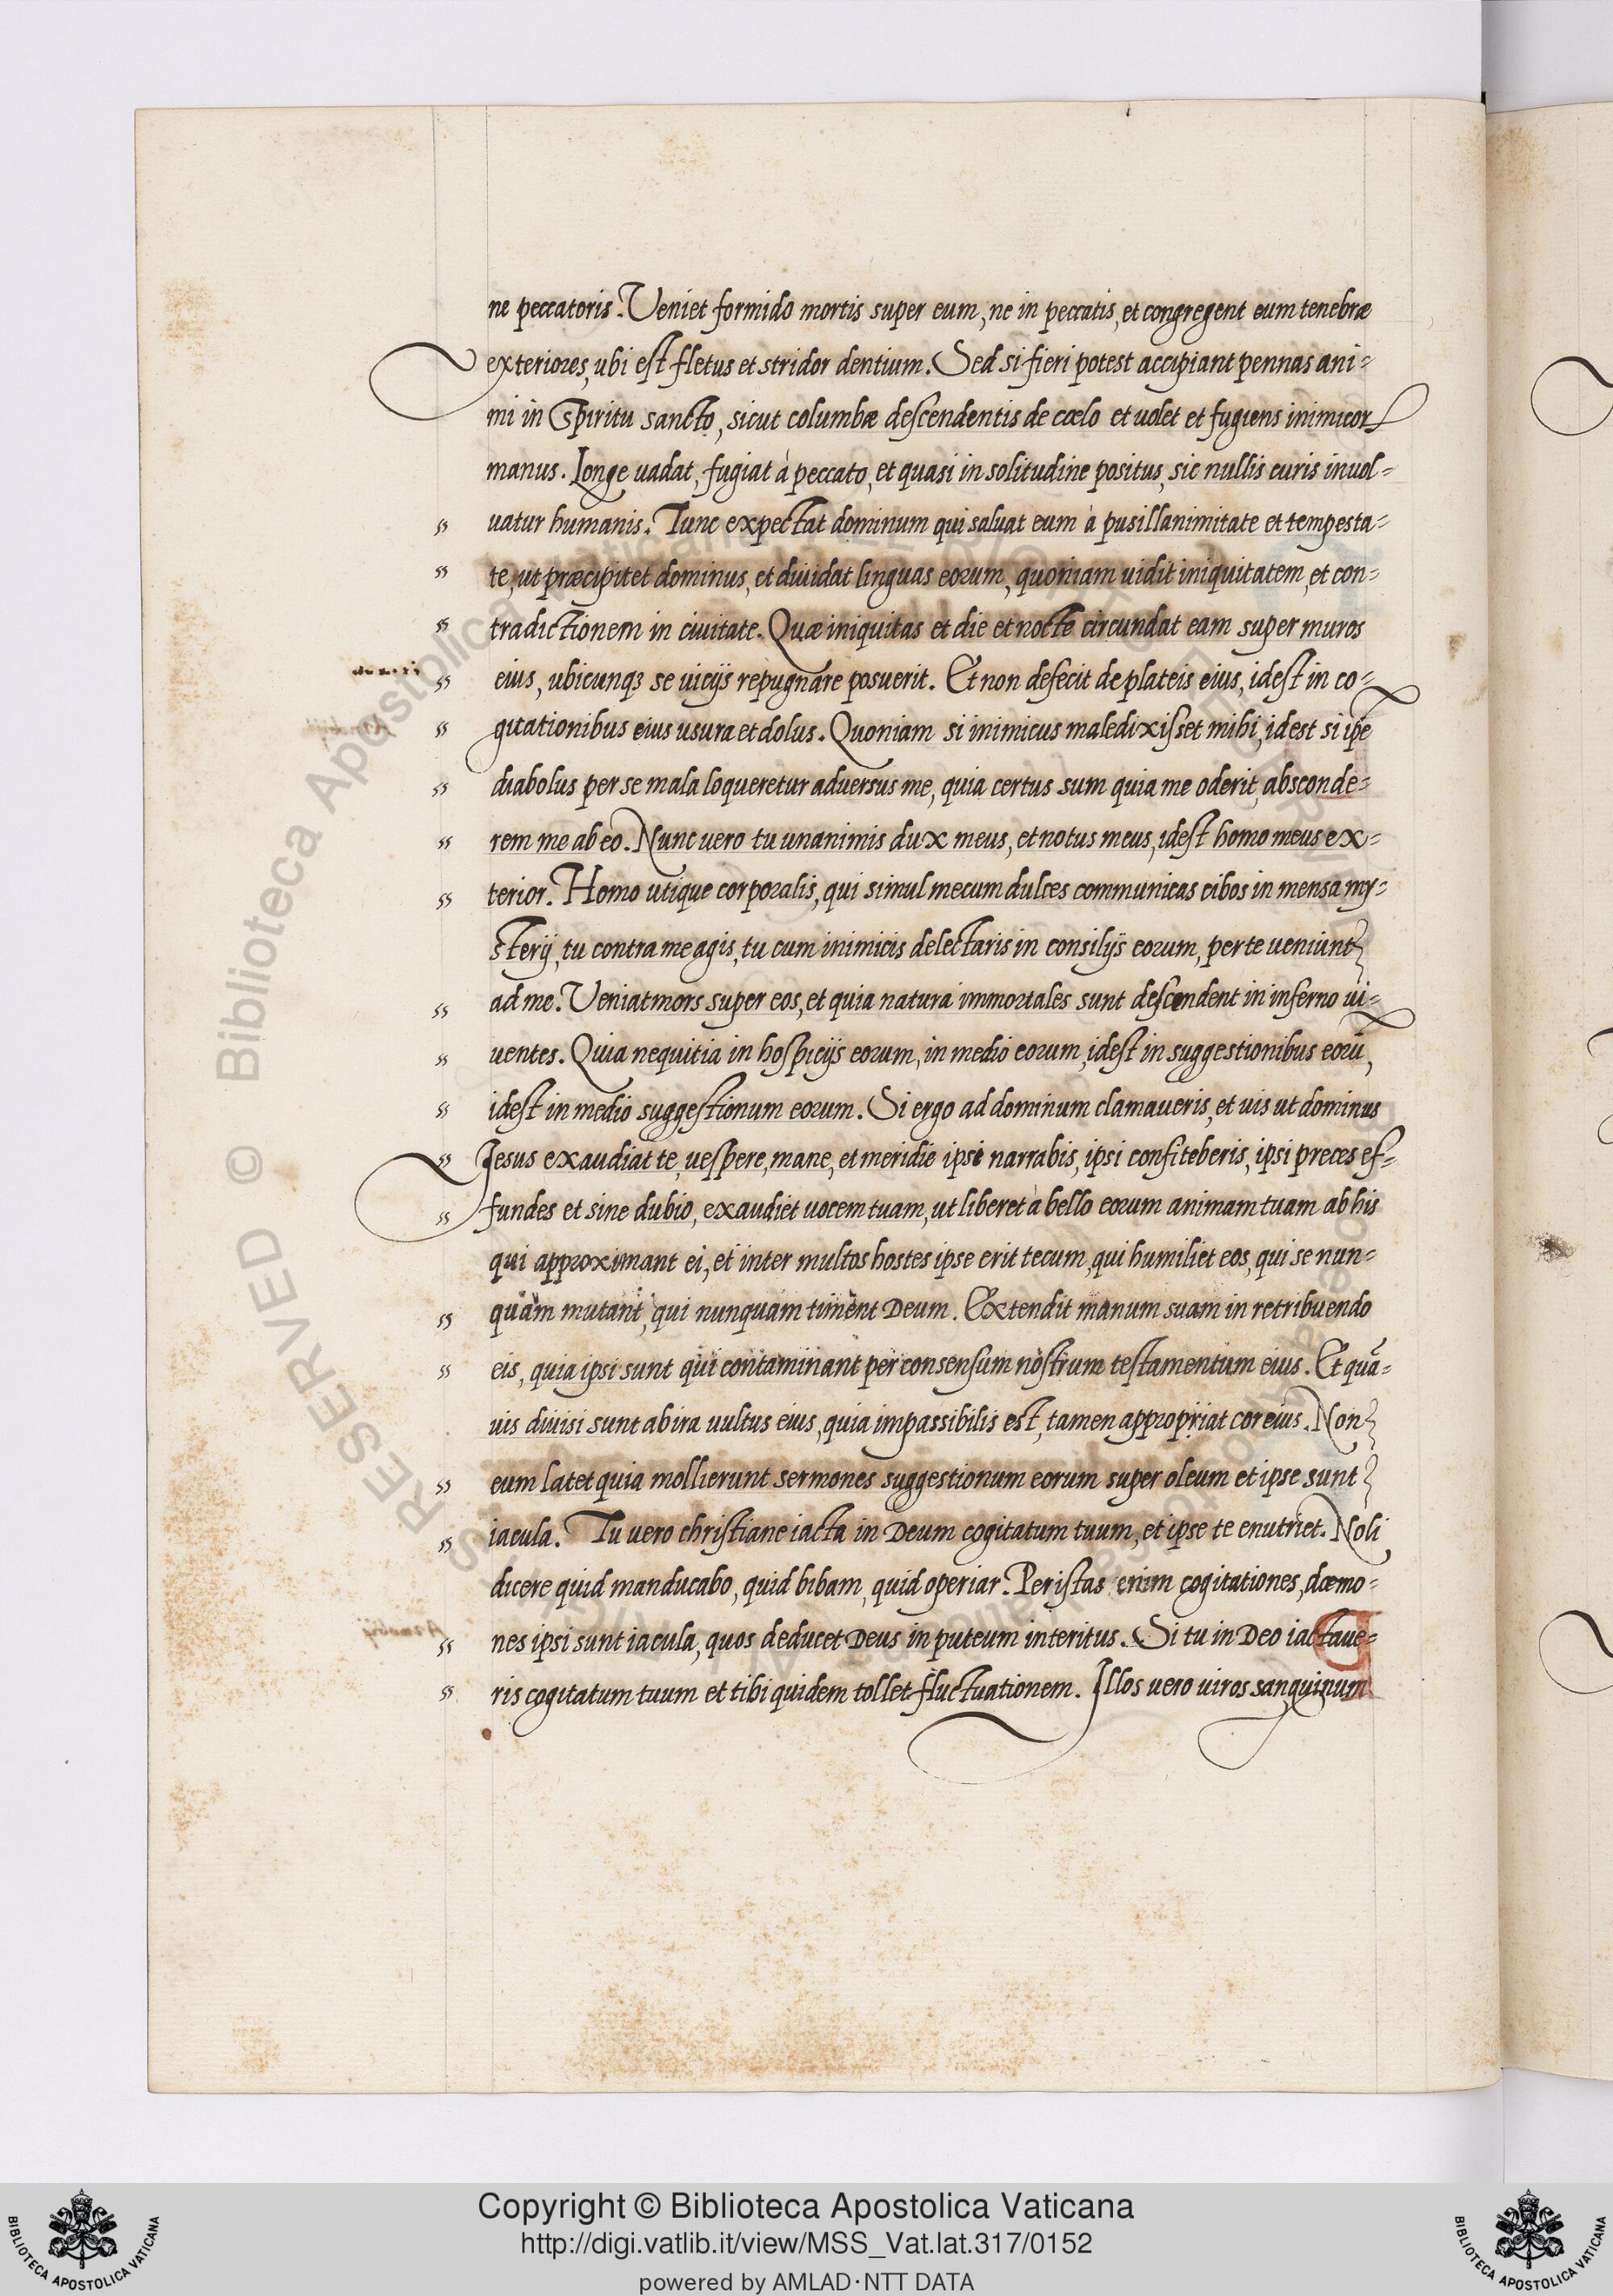 ne peccatoris. Veniet formido mortis super eum, ne in peccatis, et congregent eum tenebræ
exteriores, ubi est fletus et stridor dentium. Sed si fieri potest accipiant pennas ani=
mi in Spiritu sancto, sicut columbæ descendentis de cœlo et uolet et fugiens inimicor
manus. Longe uadat, fugiat à peccato, et quasi in solitudine positus, sic nullis curis inuol=
uatur humanis. Tunc expectat dominum qui saluat eum à pusillanimitate et tempesta=
te, ut præcipitet dominus, et diuidat linguas eorum, quoniam uidit iniquitatem, et con=
tradictionem in ciuitate. Quæ iniquitas et die et nocte circundat eam super muros
eius, ubicunqȝ se uicijs repugnare posuerit. Et non defecit de plateis eius, idest in co=
gitationibus eius usura et dolus. Quoniam si inimicus maledixisset mihi, idest si ipe
diabolus per se mala loqueretur aduersus me, quia certus sum quia me oderit, absconde=
rem me ab eo. Nunc uero tu unanimis dux meus, et notus meus, idest homo meus ex=
terior. Homo utique corporalis, qui simul mecum dulces communicas cibos in mensa my=
sterij, tu contra me agis, tu cum inimicis delectaris in consilijs eorum, per te ueniunt
ad me. Veniat mors super eos, et quia natura immortales sunt descendent in inferno ui=
uentes. Quia nequitia in hospicijs eorum, in medio eorum, idest in suggestionibus eorū,
idest in medio suggestionum eorum. Si ergo ad dominum clamaueris, et uis ut dominus
Jesus exaudiat te, uespere, mane, et meridie ipsi narrabis, ipsi confiteberis, ipsi preces ef=
fundes et sine dubio, exaudiet uocem tuam, ut liberet à bello eorum animam tuam ab his
qui approximant ei, et inter multos hostes ipse erit tecum, qui humiliet eos, qui se nun=
quam mutant, qui nunquam timent Deum. Extendit manum suam in retribuendo
eis, quia ipsi sunt qui contaminant per consensum nostrum testamentum eius. Et quā=
uis diuisi sunt ab ira uultus eius, quia impassibilis est, tamen appropriat cor eius. Non
eum latet quia mollierunt sermones suggestionum eorum super oleum et ipse sunt
iacula. Tu uero christiane iacta in Deum cogitatum tuum, et ipse te enutriet. Noli
dicere quid manducabo, quid bibam, quid operiar. Per istas enim cogitationes, dæmo=
nes ipsi sunt iacula, quos deducet Deus in puteum interitus. Si tu in Deo iactaue=
ris cogitatum tuum et tibi quidem tollet fluctuationem. Illos uero uiros sanguinum
Copyright © Biblioteca Apostolica Vaticana
http://digi.vatlib.it/view/MSS_Vat.lat.317/0152
powered by AMLAD·NTT DATA
BIBLIOTECA APOSTOLICA VATICANA
BIBLIOTECA APOSTOLICA VATICANA